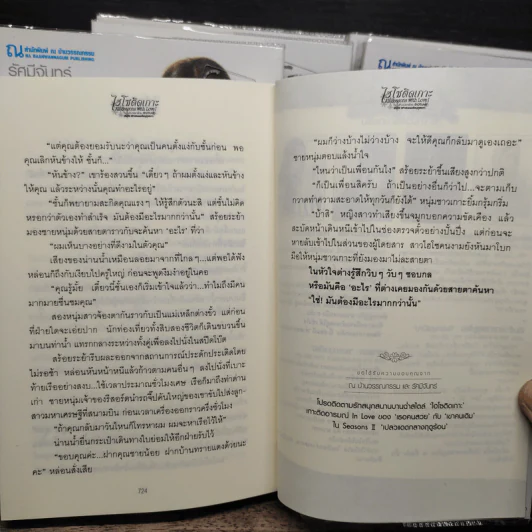 ณ สำนักพิมพ์ ณ บ้านวรรณกรรม
รัศมีจันทร์
ไฮโซติดเกาะ
"แต่คุณต้องยอมรับนะว่าคุณเป็นคนตั้งแง่กับชั้นก่อน พอ
คุณเลิกหันข้างให้ ชั้นก็..."
"หันข้าง?" เขาร้องสวนขึ้น "เดี๋ยวๆ ถ้าผมตั้งแง่และหันข้าง
ให้คุณ แล้วระหว่างนั้นคุณทำอะไรอยู่"
"ชั้นก็พยายามสะกิดคุณแรงๆ ให้รู้สึกตัวนะสิ แต่ชั้นไม่คิด
หรอกว่าตัวเองทำสำเร็จ มันต้องมีอะไรมากกว่านั้น" สร้อยระย้า
มองชายหนุ่มด้วยสายตาราวกับจะค้นหา 'อะไร' ที่ว่า
"ผมเห็นบางอย่างที่ดีงามในตัวคุณ"
เสียงของน่านน้ำเหมือนลอยมาจากที่ไกลๆ...แต่พอได้ฟัง
หล่อนก็ถึงกับเงียบไปครู่ใหญ่ ก่อนจะพูดงึมงำอยู่ในคอ
"คุณรู้มั้ย เดี๋ยวนี้ชั้นเองก็เริ่มเข้าใจแล้วว่า...ทำไมถึงมีคน
มากมายชื่นชมคุณ"
สองหนุ่มสาวจ้องตากันราวกับเป็นแม่เหล็กต่างขั้ว แต่ก่อน
ที่ฝ่ายใดจะเอ่ยปาก นักท่องเที่ยวทั้งสิบสองชีวิตก็เดินขบวนขึ้น
มาบนท่าน้ำ แทรกกลางระหว่างทั้งคู่เพื่อลงไปนั่งในสปีดโบ๊ต
สร้อยระย้ารีบผละออกจากสถานการณ์ประดักประเดิดโดย
ไม่รอช้า หล่อนหันหน้าหนีแล้วก้าวตามคนอื่นๆ ลงไปนั่งที่เบาะ
ท้ายเรืออย่างสงบ...ใช้เวลาประมาณชั่วโมงเศษ เรือก็มาถึงท่าด่าน
เก่า ชายหนุ่มเจ้าของรีสอร์ตนำรถจี๊ปคันใหญ่ของเขาขับไปส่งลูก-
สาวมหาเศรษฐีที่สนามบิน ก่อนเวลาเครื่องออกราวครึ่งชั่วโมง
"ถ้าคุณกลับมาวันไหนก็โทรหาผม ผมจะหาเรือไว้ให้"
น่านน้ำยื่นกระเป๋าเดินทางใบย่อมให้อีกฝ่ายรับไว้
"ขอบคุณค่ะ...ฝากคุณชายน้อย ฝากบ้านทรายแดงด้วยนะ
คะ" หล่อนสั่งเสีย
724
ไฮโซติดเกาะ
"ผมก็ว่างบ้างไม่ว่างบ้าง จะให้ดีคุณก็กลับมาดูเองเถอะ"
ชายหนุ่มตอบแล้งน้ำใจ
"ไหนว่าเป็นเพื่อนกันไง" สร้อยระย้าขึ้นเสียงสูงกว่าปกติ
"ก็เป็นเพื่อนสิครับ ถ้าเป็นอย่างอื่นก็ว่าไป...จะตามเก็บ
กวาดทำความสะอาดให้ทุกวันก็ยังได้" หนุ่มชาวเกาะยิ้มกรุ้มกริ่ม
"บ้าสิ" หญิงสาวทำเสียงขึ้นจมูกบอกความขัดเคือง แล้ว
สะบัดหน้าเดินหนีเข้าไปในช่องตรวจตั๋วอย่างปั้นปึ่ง แต่ก่อนจะ
หายลับเข้าไปในส่วนของผู้โดยสาร สาวไฮโซคนงามยังหันมาโบก
มือให้หนุ่มชาวเกาะที่ยังมองมาไม่ละสายตา
ในหัวใจต่างรู้สึกวับๆ วับๆ ชอบกล
หรือมันคือ 'อะไร' ที่ต่างเคยมองกันด้วยสายตาค้นหา
"ใช่! มันต้องมีอะไรมากกว่านั้น"
ขอได้รับความขอบคุณจาก
ณ บ้านวรรณกรรม และ รัศมีจันทร์
โปรดติดตามรักสนุกสนานบานฉ่ำสไตล์ 'ไฮโซติดเกาะ'
เกาะติดอารมณ์ In Love ของ 'เธอคนสวย' กับ 'เขาคนเดิม'
ใน Seasons II 'เปลวแดดกลางฤดูร้อน'